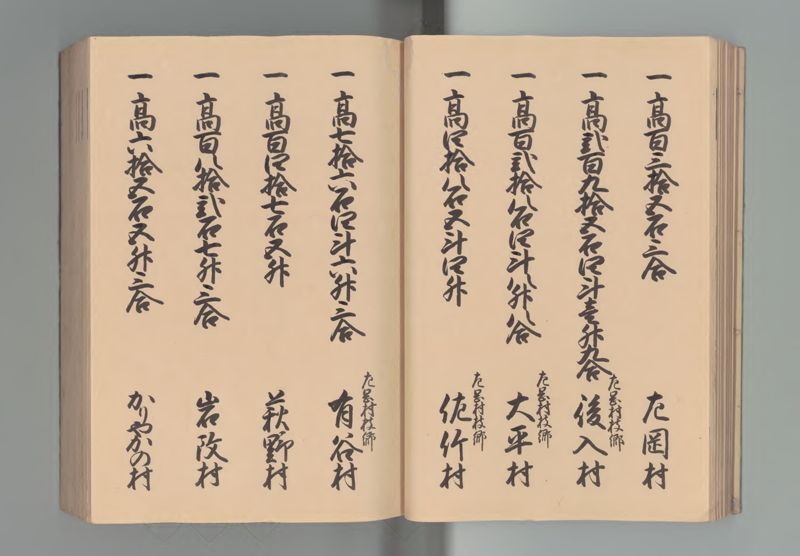 一 高百三拾五石三合 岡村
一 高弐百九拾五石四斗壱升九合 村枝郷 後入村
一 高百弐拾八石四斗八升八合 村枝郷 大平村
一 高四拾八石五斗四升 村枝郷 佐竹村
一 高七拾六石四斗六升三合 村枝郷 有谷村
一 高百四拾七石五升 萩野村
一 高百八拾弐石七升三合 岩改村
一 高六拾五石五升三合 かりやかの村